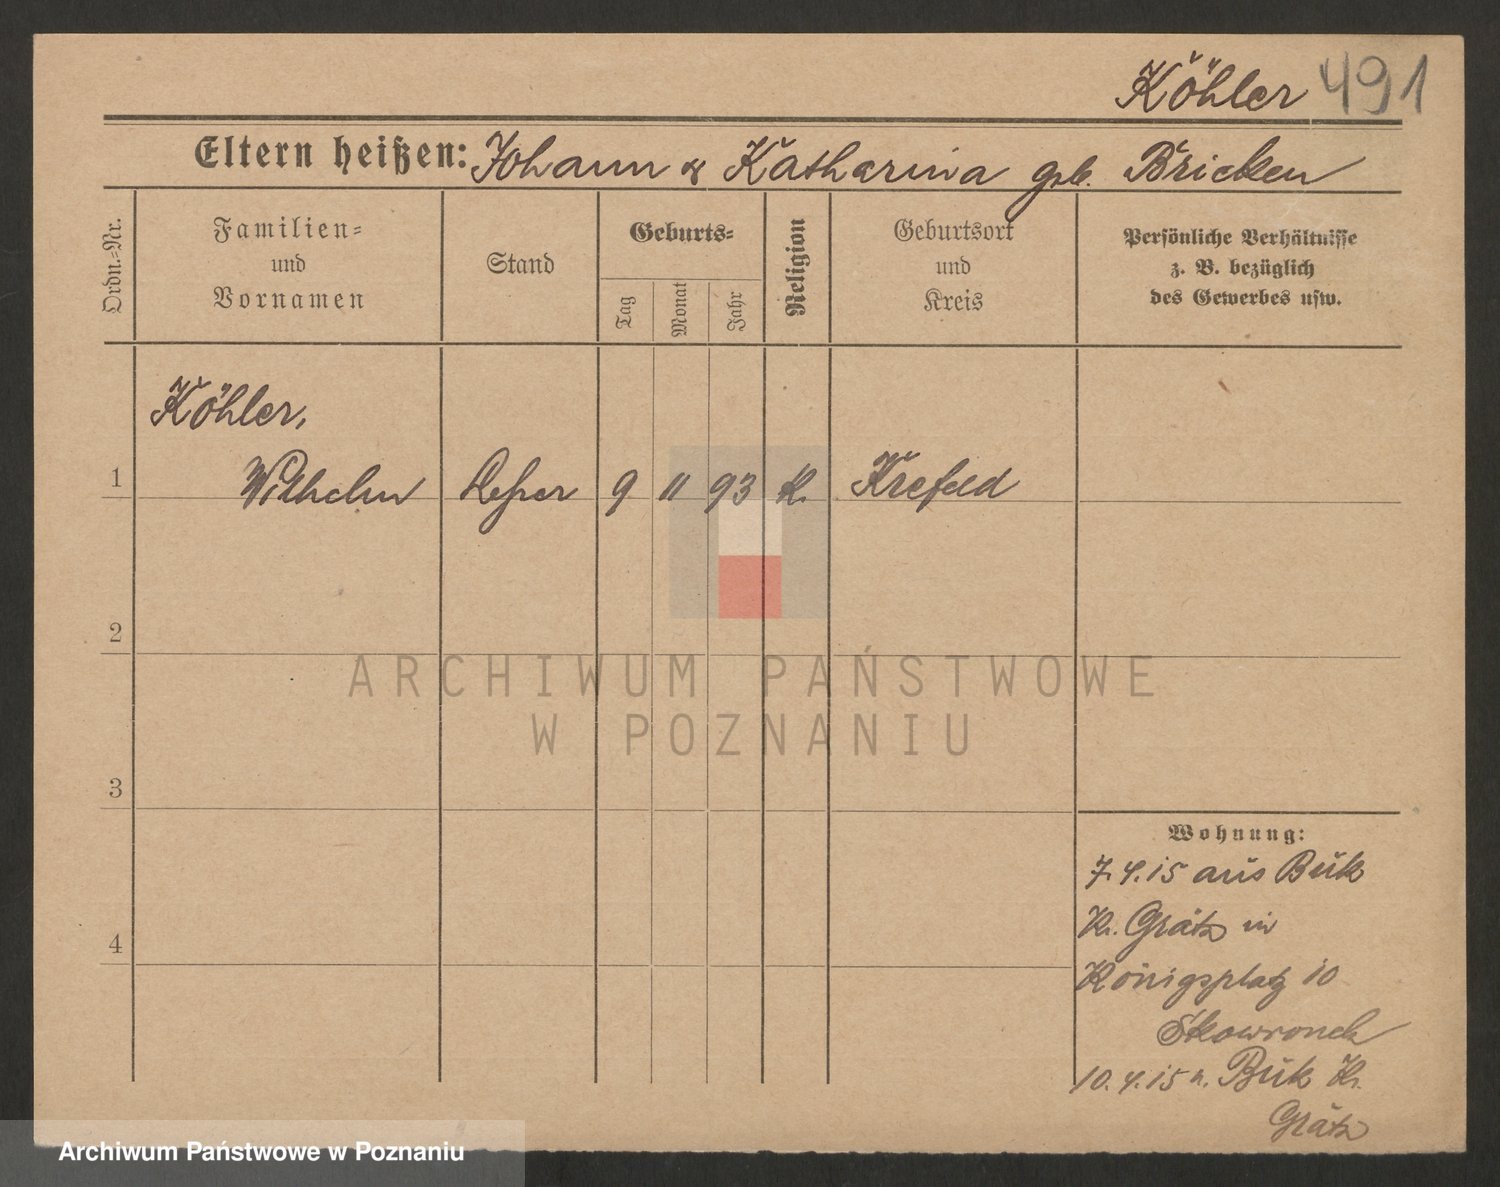 Köhler 491
Eltern heißen: Johann & Katharina geb. Bricken
Ordn.-Nr.
Familien- und Vornamen
Stand
Geburts-
Tag
Monat
Jahr
Religion
Geburtsort und Kreis
Persönliche Verhältnisse
z. B. bezüglich
des Gewerbes usw.
Köhler,
1 Wilhelm 9 11 93 K. Krefeld
2
3
4
Wohnung:
7.4.15 aus Buk
Kr. Grätz in
Königsplatz 10
Skowronek
10.4.15 n. Buk Kr.
Grätz
ARCHIWUM PAŃSTWOWE
W POZNANIU
Archiwum Państwowe w Poznaniu